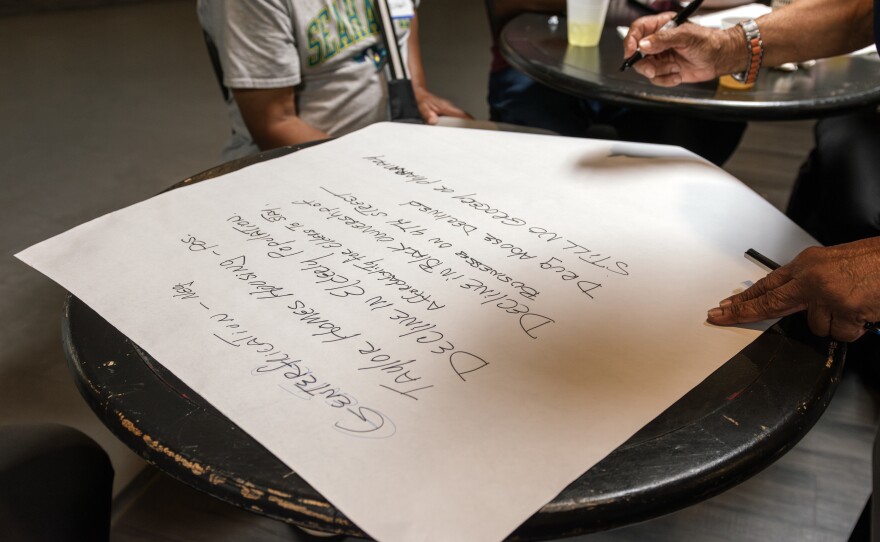 GENTERFICATION - NEG.
TAYLOR HOMES HOUSING - POS.
DECLINE IN ELDERLY POPULATION.
AFFORDABILITY FOR ELDERS TO STAY.
DECLINE IN BLACK OWNERSHIP OF
BUSINESSES ON 4TH STREET
DRUG ABUSE DECLINED
STILL NO GROCERY OR PHARMACY
SEAHA